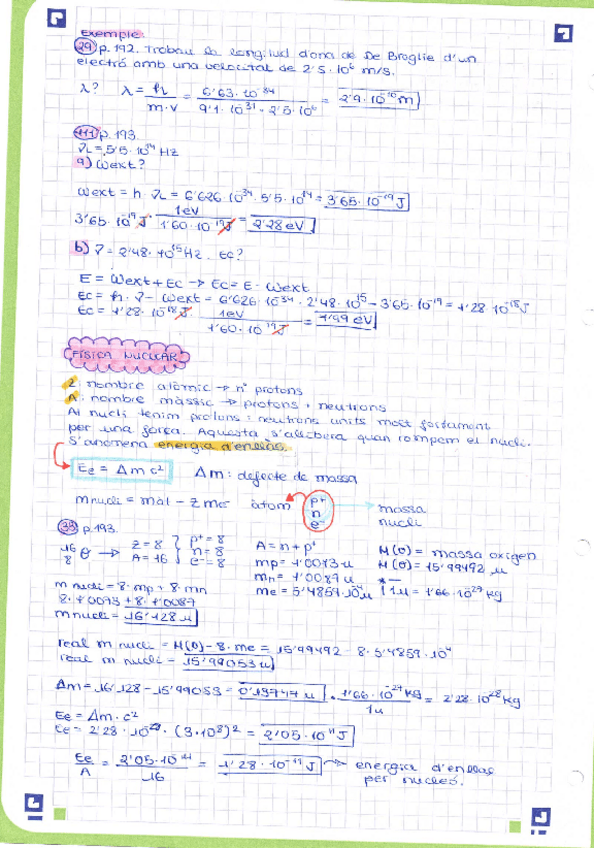 Exemple:
29 p.192. Trobau la longitud d'ona de De Broglie d'un
electró amb una velocitat de 2'5·10⁶ m/s.
λ? λ = h / m·v = 6'63·10⁻³⁴ / 9'1·10⁻³¹·2'5·10⁶ = 2'9·10⁻¹⁰ m
p.193.
νL = 5'5·10¹⁴ Hz
a) Wext?
Wext = h·νL = 6'626·10⁻³⁴·5'5·10¹⁴ = 3'65·10⁻¹⁹ J
3'65·10⁻¹⁹ J · 1eV / 1'60·10⁻¹⁹ J = 2'28 eV
b) ν = 2'48·10¹⁵ Hz. Ec?
E = Wext + Ec → Ec = E - Wext
Ec = h·ν - Wext = 6'626·10⁻³⁴·2'48·10¹⁵ - 3'65·10⁻¹⁹ = 1'28·10⁻¹⁸ J
Ec = 1'28·10⁻¹⁸ J · 1eV / 1'60·10⁻¹⁹ J = 7'99 eV
FÍSICA NUCLEAR
Z: nombre atòmic → nº protons
A: nombre màssic → protons + neutrons
Al nucli tenim protons i neutrons units molt fortament
per una força. Aquesta s'allibera quan rompem el nucli.
S'anomena energia d'enllaç.
Ee = Δm c² Δm: defecte de massa
m nucli = màt - Z me àtom p⁺ n e⁻ massa nucli
33 p.193.
¹⁶₈O → Z = 8 A = 16 } p⁺ = 8 n = 8 e⁻ = 8 A = n + p⁺ M(O) = massa oxigen
mp = 1'0073 u M(O) = 15'99492 u
mn = 1'0087 u 1u = 1'66·10⁻²⁷ kg
m nucli = 8·mp + 8·mn me = 5'4859·10⁻⁴ u
8·1'0073 + 8·1'0087
m nucli = 16'128 u
real m nucli = M(O) - 8·me = 15'99492 - 8·5'4859·10⁻⁴
real m nucli = 15'99053 u
Δm = 16'128 - 15'99053 = 0'13747 u · 1'66·10⁻²⁷ kg / 1u = 2'28·10⁻²⁸ kg
Ee = Δm·c²
Ee = 2'28·10⁻²⁸·(3·10⁸)² = 2'05·10⁻¹¹ J
Ee / A = 2'05·10⁻¹¹ / 16 = 1'28·10⁻¹² J → energia d'enllaç
per nucleó.